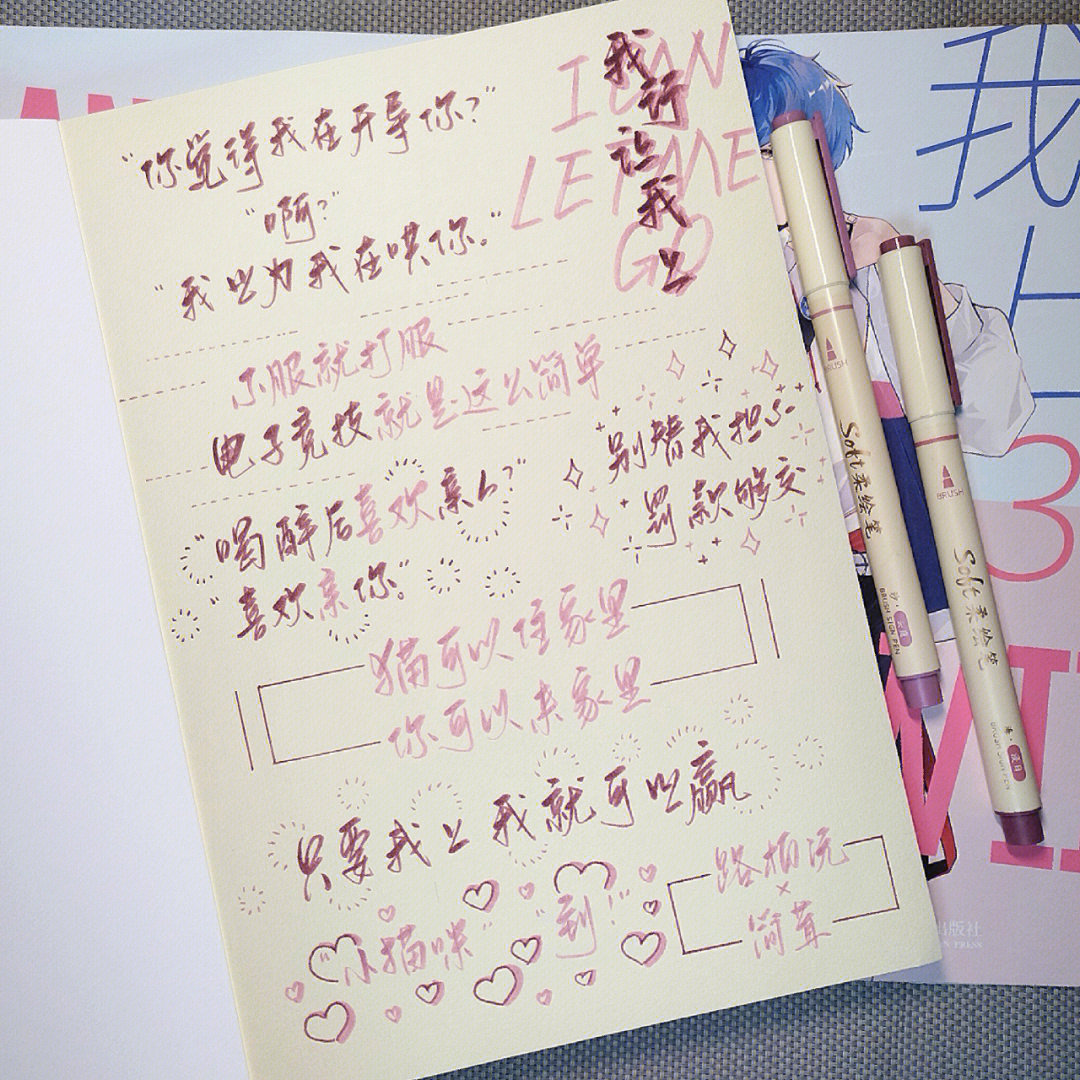 “你觉得我在开导你？”
“啊？”
“我以为我在哄你。”
I CAN
LET ME
GO
我行让我上
不服就打服
电子竞技就是这么简单
别替我担心
罚款够交
“喝醉后喜欢亲人？”
“喜欢亲你。”
猫可以住家里
你可以来家里
只要我上 我就可以赢
“小猫咪”
“到！”
路柏沅
×
简茸
BRUSH
Soft柔绘笔
BRUSH SIGN PEN
BRUSH
Soft柔绘笔
BRUSH SIGN PEN
我上
3
出版社
PRESS